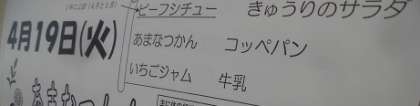 ビーフシチュー きゅうりのサラダ
4月19日(火)
あまなつかん コッペパン
いちごジャム 牛乳